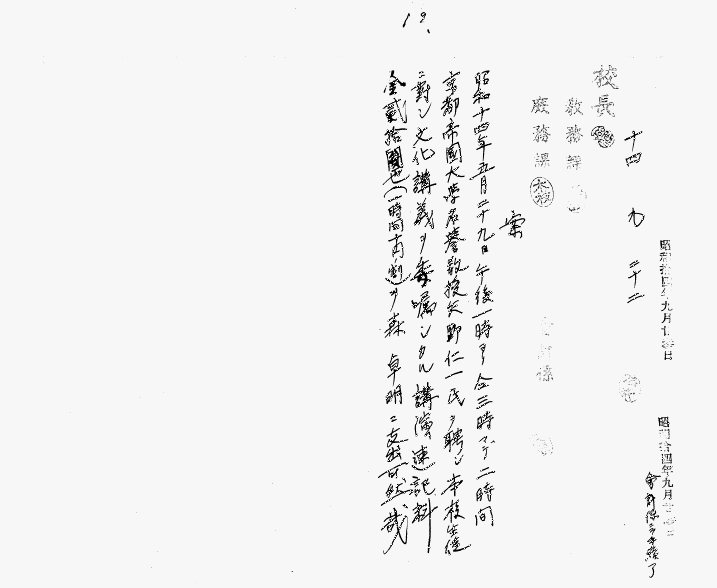 19.
昭和拾四年九月廿 日
昭和拾四年九月 日
會計係ニ手續了
十四 九 二十二
校長
教務課
庶務課
會計係
案
昭和十四年五月二十九日午後一時ヨリ仝三時マデ二時間
京都帝國大學名譽教授矢野仁一氏ヲ聘シ本校生徒
ニ對シ文化講義ヲ委嘱シタル講演速記料
金貳拾圓也(一時間十円割)ヲ森 卓明ニ支出可然哉